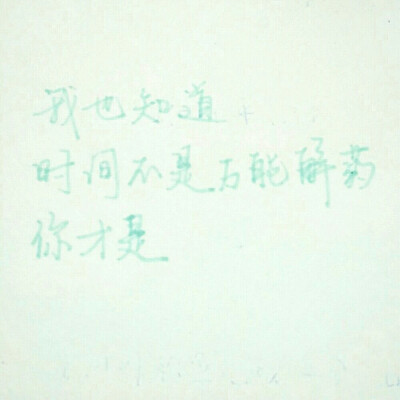 我也知道
时间不是万能解药
你才是